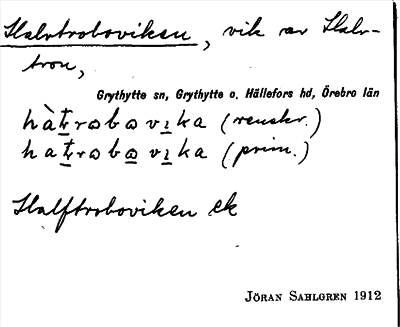 Halvtroboviken, vik av Halv-
tron,
Grythytte sn, Grythytte o. Hällefors hd, Örebro län
hàt̲rɷbɷvi̲ka (renskr.)
hat̲rɷbɷ̲vi̲ka (prim.)
Halftroboviken ek
JÖRAN SAHLGREN 1912